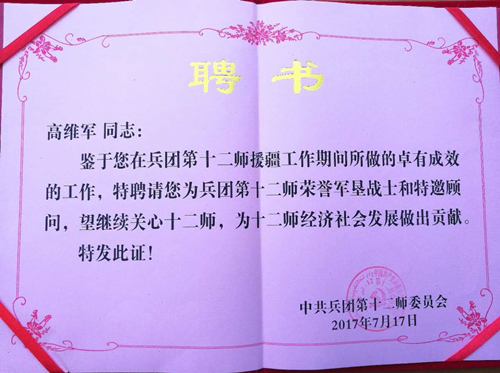 聘书
高维军 同志：
鉴于您在兵团第十二师援疆工作期间所做的卓有成效
的工作，特聘请您为兵团第十二师荣誉军垦战士和特邀顾
问，望继续关心十二师，为十二师经济社会发展做出贡献。
特发此证！
中共兵团第十二师委员会
2017年7月17日